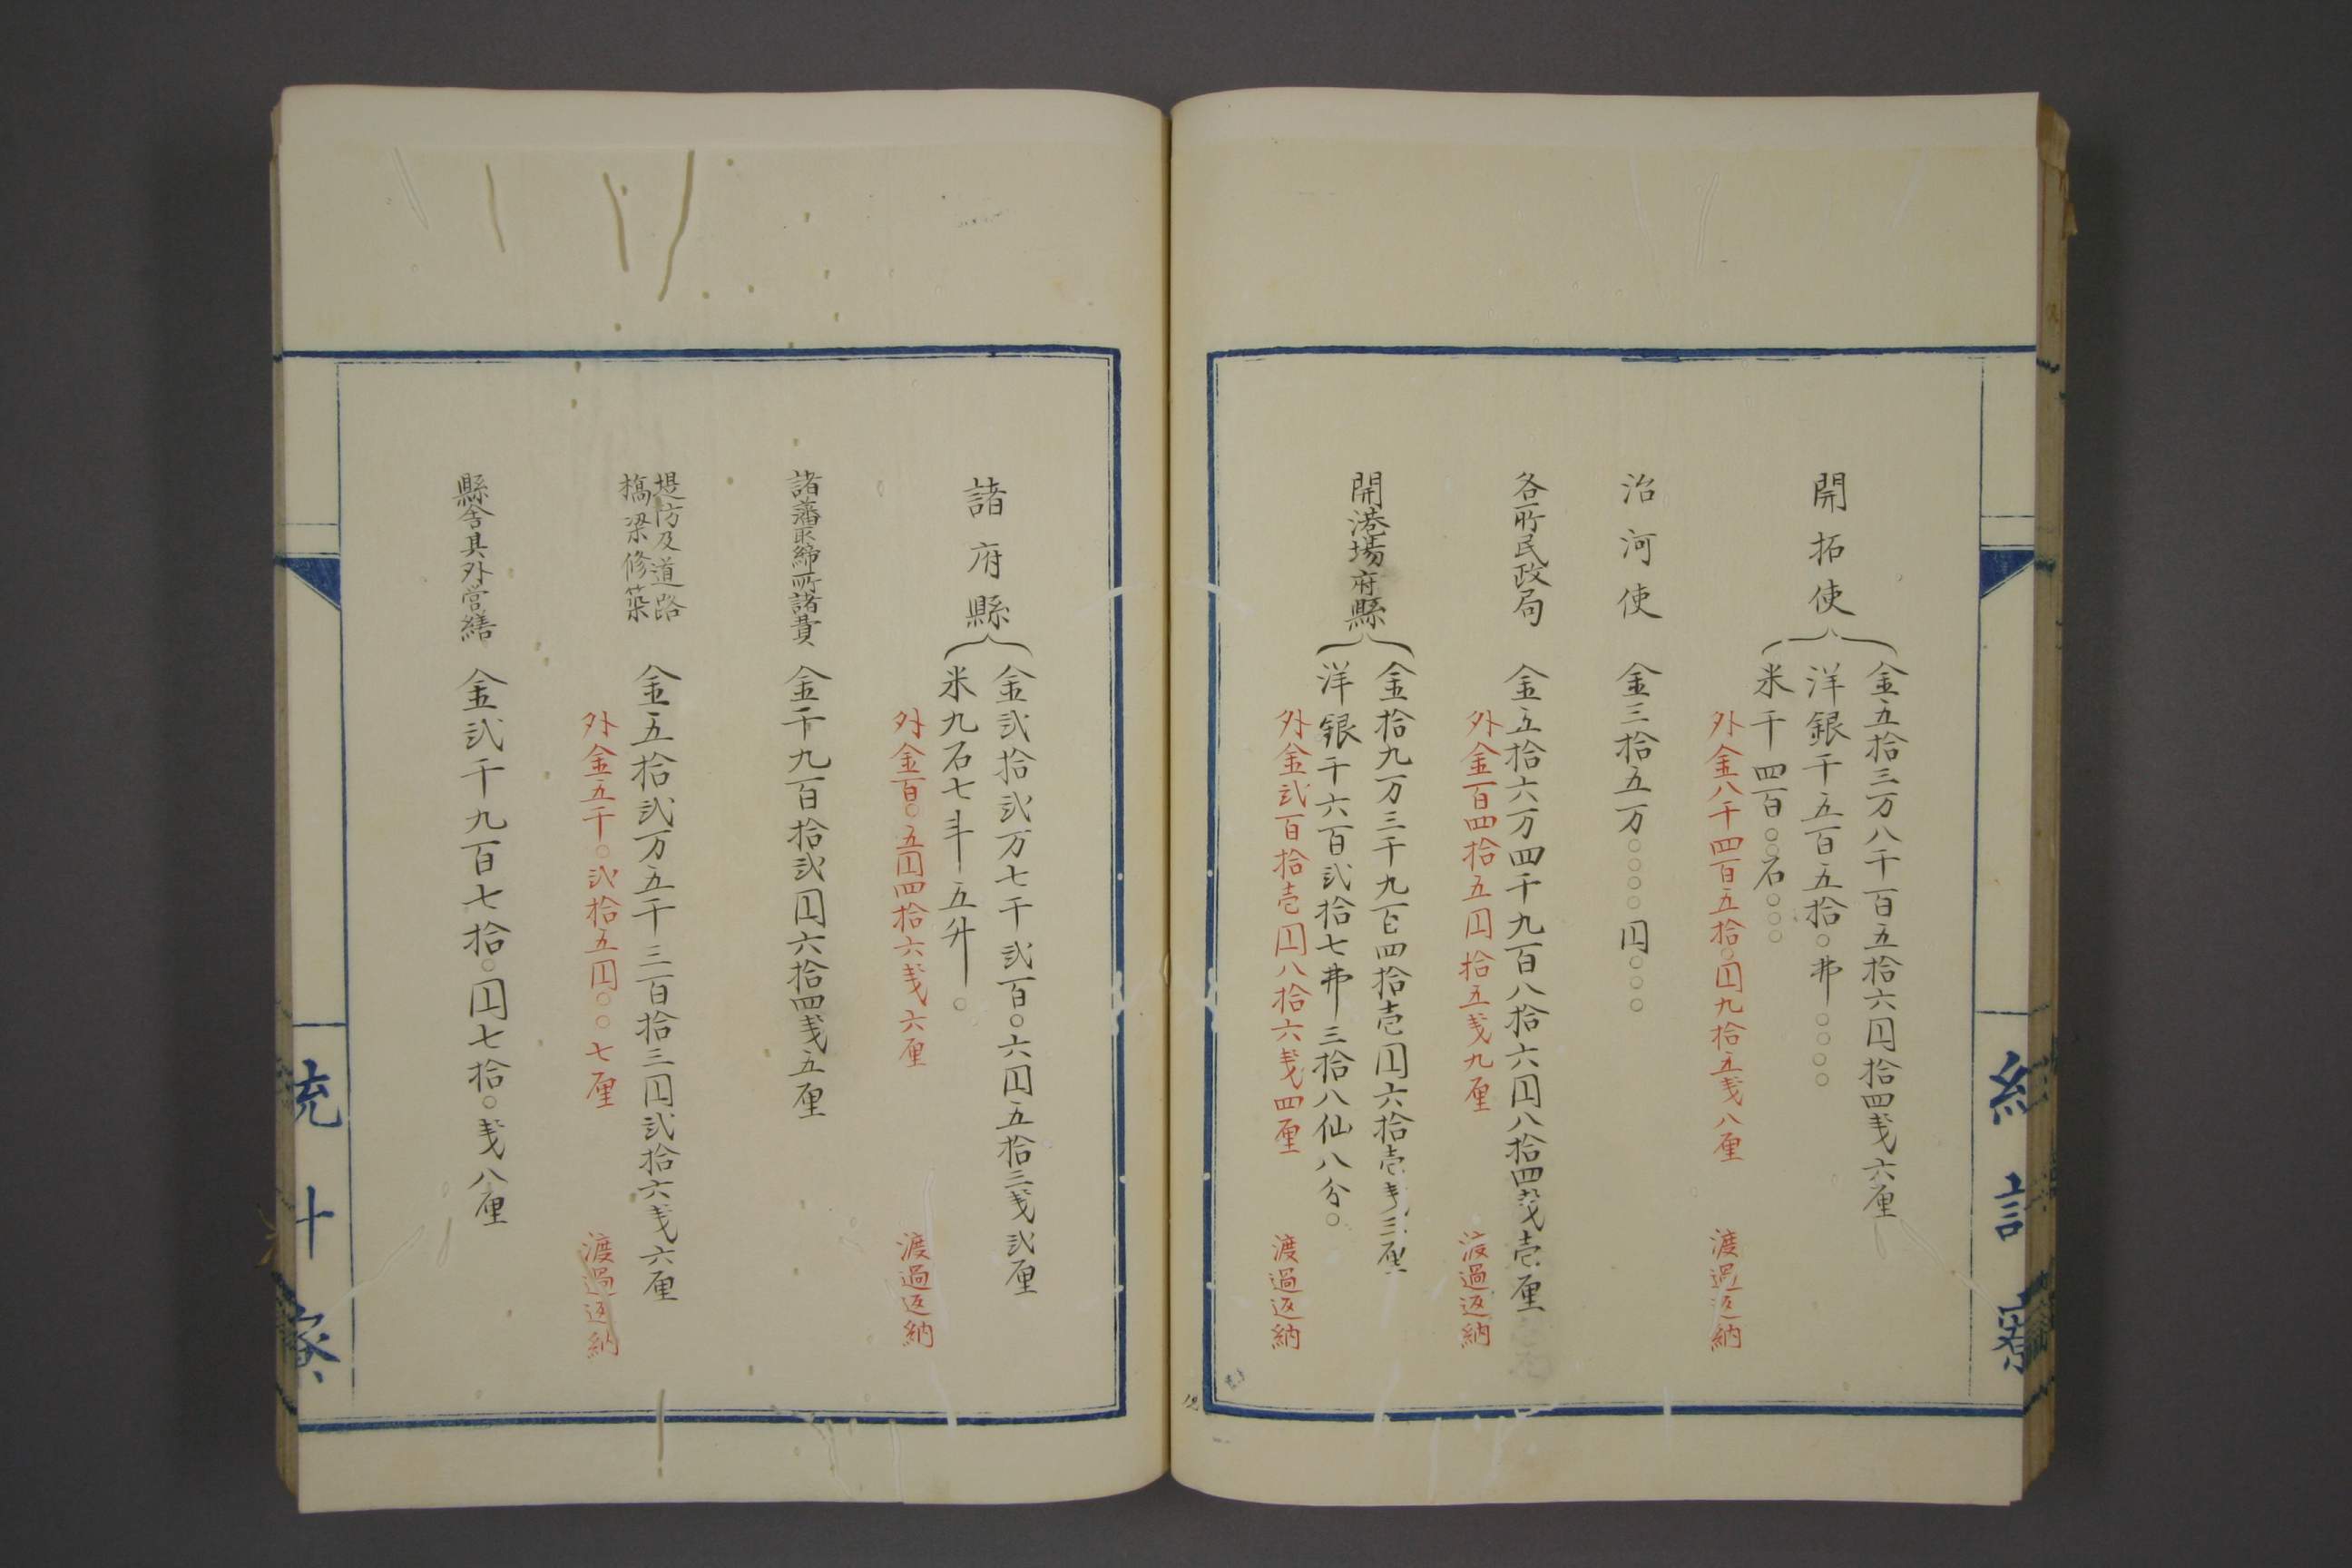 開拓使
金五拾三万八千百五拾六円拾四戔六厘
洋銀千五百五拾○弗○○○○
米千四百○○石○○○
外金八千四百五拾○円九拾五戔八厘 渡過返納
治河使 金三拾五万○○○○円○○○
各所民政局 金五拾六万四千九百八拾六円八拾四戔壱厘
外金百四拾五円拾五戔九厘 渡過返納
開港場府縣
金拾九万三千九百四拾壱円六拾壱戔三厘
洋銀千六百弐拾七弗三拾八仙八分○
外金弐百拾壱円八拾六戔四厘 渡過返納
統計寮
諸府縣
金弐拾弐万七千弐百○六円五拾三戔弐厘
米九石七斗五升○
外金百○五円四拾六戔六厘 渡過返納
諸藩取締所諸費 金千九百拾弐円六拾四戔五厘
堤防及道路
橋梁修築
金五拾弐万五千三百拾三円弐拾六戔六厘
外金五千○弐拾五円○○七厘 渡過返納
縣舎其外営繕 金弐千九百七拾○円七拾○戔八厘
統計寮